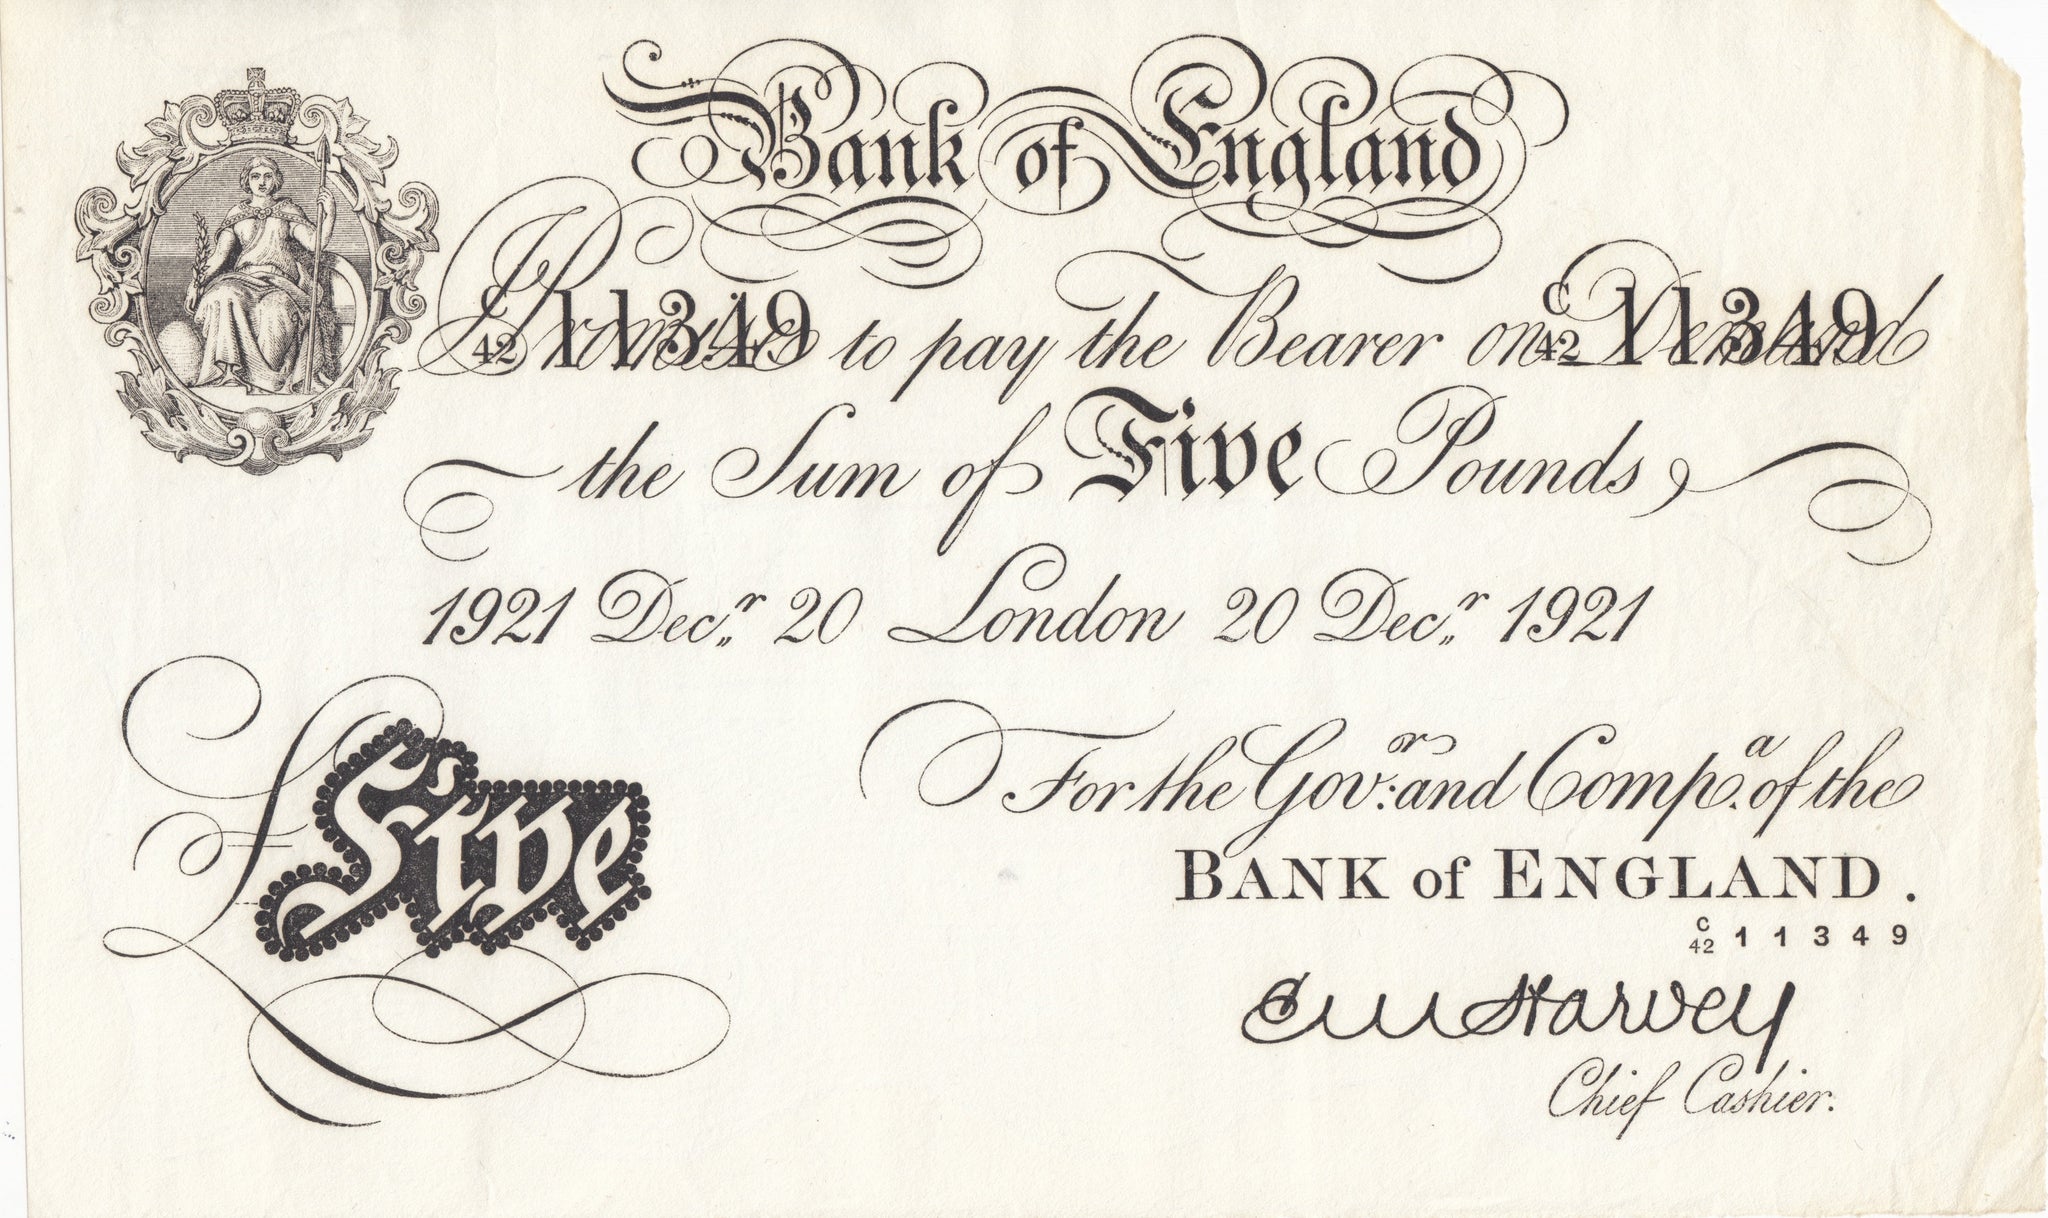 Bank of England
I Promise to pay the Bearer on Demand
C/42 11349 C/42 11349
the Sum of Five Pounds
1921 Dec.r 20 London 20 Dec.r 1921
£ Five
For the Gov:or and Comp.a of the
BANK of ENGLAND.
C/42 11349
E M Harvey
Chief Cashier.